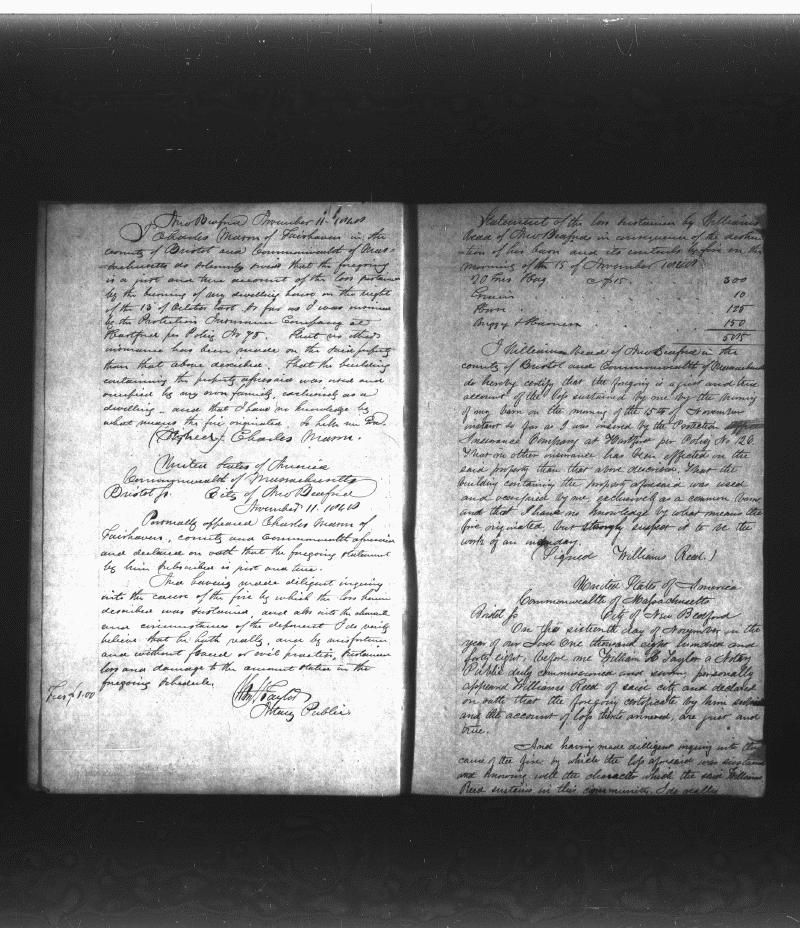 New Bedford November 11. 1848
I Charles Mason of Fairhaven in the
county of Bristol and Commonwealth of Mass-
achusetts do solemnly swear that the foregoing
is a just and true account of the loss sustained
by the burning of my dwelling house in the night
of the 13 of October last so far as I was insured
by the Protection Insurance Company at
Hartford per Policy No 75. That no other
insurance has been made on the said property
than that above described. That the building
containing the property aforesaid was used and
occupied by my own family, exclusively as a
dwelling - and that I have no knowledge by
what means the fire originated. So help me God.
(Signed) Charles Mason.
United States of America
Commonwealth of Massachusetts
Bristol ss. City of New Bedford
November 11. 1848
Personally appeared Charles Mason of
Fairhaven, county and Commonwealth aforesaid
and declared on oath that the foregoing statement
by him subscribed is just and true.
And having made diligent inquiry
into the cause of the fire by which the loss herein
described was sustained, and also into the character
and circumstances of the deponent I do verily
believe that he hath really, and by misfortune
and without fraud or evil practice, sustained
loss and damage to the amount stated in the
foregoing schedule.
Fees $1.00
Wm H Taylor
Notary Public.
Statement of the loss sustained by Williams
Read of New Bedford in consequence of the destruc
tion of his barn and its contents by fire on the
morning of the 15 of November 1848
20 Tons Hay @ $15 300
10
Barn 125
Buggy & Harness 150
I Williams Read of New Bedford in the
county of Bristol and Commonwealth of Massachusetts
do hereby certify that the foregoing is a just and true
account of the loss sustained by me by the burning
of my barn on the morning of the 15th of November
instant so far as I was insured by the Protection
Insurance Company at Hartford per Policy No. 126.
That no other insurance has been effected on the
said property than that above described. That the
building containing the property aforesaid was used
and occupied by me exclusively as a common barn
and that I have no knowledge by what means the
fire originated, but strongly suspect it to be the
work of an
(Signed Williams Read.)
United States of America
Commonwealth of Massachusetts
Bristol ss City of New Bedford
On this sixteenth day of November in the
year of our Lord One thousand eight hundred and
forty eight, before me William H Taylor a Notary
Public duly commissioned and sworn, personally
appeared Williams Read of said city and declared
on oath that the foregoing certificate by him
and the account of loss thereto annexed, are just and
true.
And having made dilligent inquiry into the
cause of the fire by which the loss aforesaid was sustained
and knowing well the character which the said Williams
Read sustains in this community, I do really